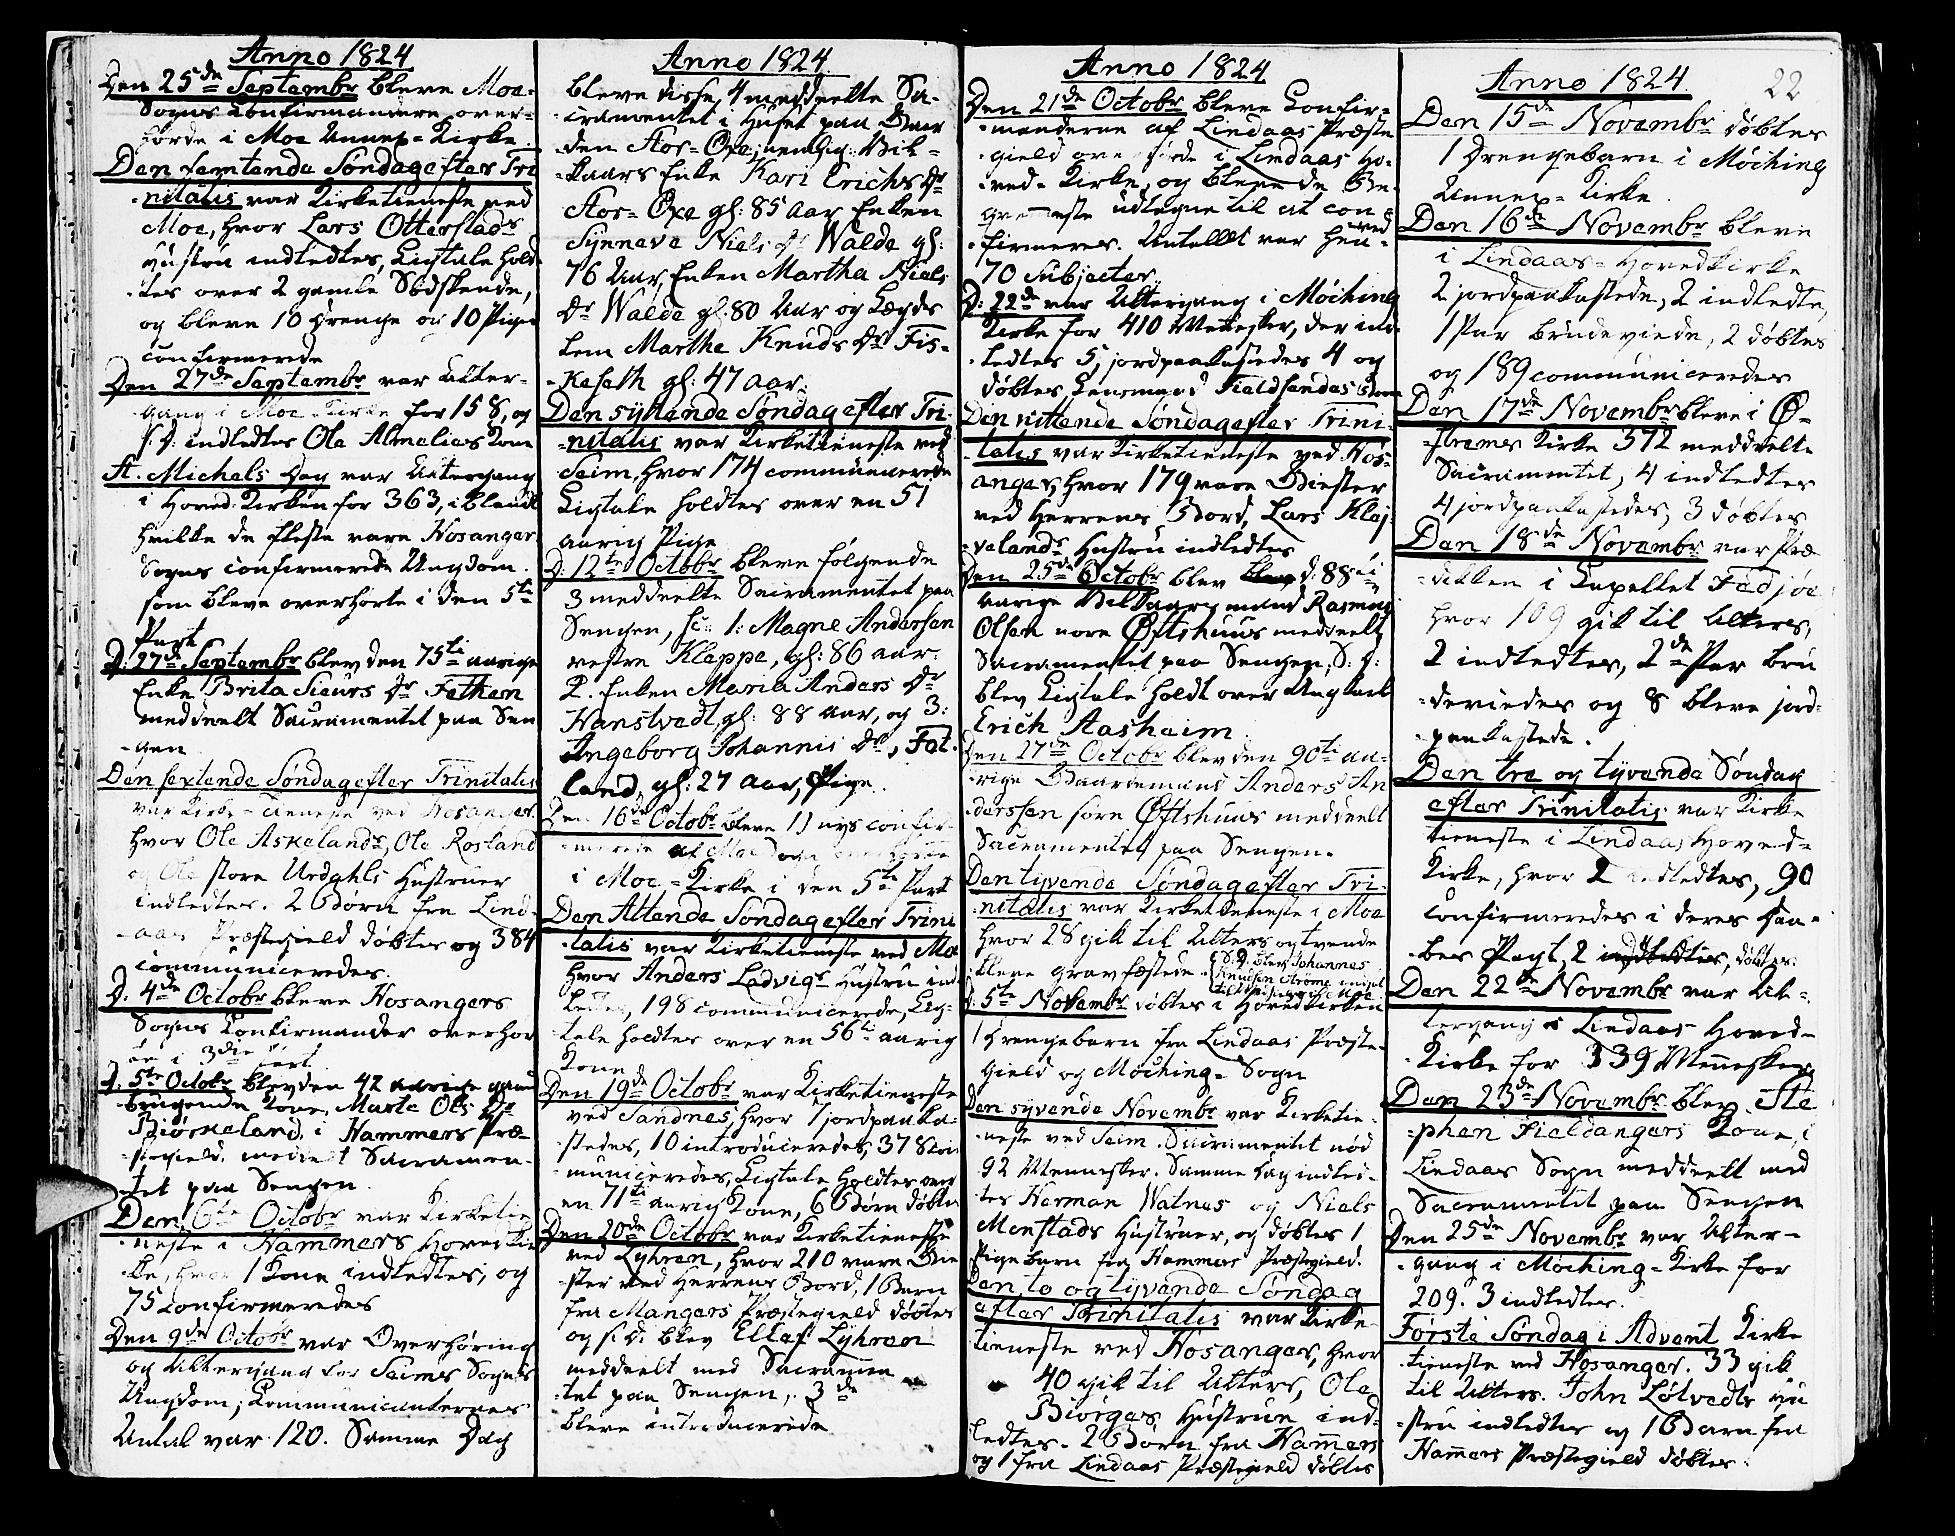 Anno 1824
Den 25de Septembr bleve Moe-
Sogns Confirmandere over-
hørde i Moe Annex-Kirke
Den femtende Søndag efter Tri
nitatis var Kirketieneste ved
Moe, hvor Lars Otterstads
Hustru indledtes, Ligtale hold-
tes over 2 gamle Sødskende,
og bleve 10 Drenge og 10 Piger
confirmerede
Den 27de Septembr var Alter-
gang i Moe Kirke for 158, og
s: d: indledtes Ole Almelies Kone
St. Michels Dag var Altergang
i Hoved Kirken for 363, iblandt
hvilke de fleste vare Hosanger
Sogns confirmerede Ungdom.
som bleve overhørte i den 5te
Part
D: 27de Septembr blev den 75ti aarige
Enke Brita Siurs Dr Fethem
meddeelt Sacramentet paa Sen
-gen
Den sextende Søndag efter Trinitatis
var Kirke-tieneste ved Hosanger
hvor Ole Askelands, Ole Rosland
og Ole store Urdahls Hustruer
indledtes. 2 Børn fra Lind-
aas Præstegield døbtes og 384
communiceredes.
D. 4de Octobr bleve Hosangers
Sogns Confirmander overhør
te i 3die Part.
D: 5te Octobr blev den 42 aarige
brugende Kone, Marte Ols Dr
Biørkeland, i Hammers Præ-
stegield, meddeelt Sacramen-
tet paa Sengen.
Den 6te Octobr var Kirketie
neste i Hammers Hovedkir
ke, hvor 1 Kone indledtes, og
75 Confirmeredes
Den 9de Octobr var Overhøring
og Altergang for Seims Sogns
Ungdom; Communicanternes
Antal var 120. Samme Dag
Anno 1824
bleve disse, 4 meddeelte Sa-
cramentet i Huset paa Gaar
den Stor-Oxe; nemlig: Vil-
kaars Enke Kari Erichs Dr
Stor-Oxe gl: 85 Aar Enken
Synneve Niels Dr Walde gl:
76 Aar, Enken Martha Niels
Dr Walde gl: 80 Aar og Lægds
Lem Marthe Knuds Dr Fis-
keseth gl: 47 Aar.
Den syttende Søndag efter Tri-
nitatis var Kirketieneste ved
Seim, hvor 174 communicerede
Ligtale holdtes over en 51
aarig Pige
D: 12te Octobr bleve følgende
3 meddeelte Sacramentet paa
Sengen, sc: 1: Magne Andersen
vestre Kleppe, gl: 86 aar.
2. Enken Maria Anders Dr
Hanstvedt, gl: 88 aar, og 3:
Ingeborg Johannis Dr, Fat-
land, gl: 27 Aar, Pige.
Den 16de Octobr bleve 11 nys confir-
merede af Moe Sogn
i Moe-Kirke i den 5te Part
Den Attende Søndag efter Trini
tatis var Kirketieneste ved Moe
hvor Anders Ladvigs Hustru ind
ledtes, 198 communicerede, Lig-
tale holdtes over en 56ti aarig
Kone
Den 19de Octobr var Kirketieneste
ved Sandnes, hvor 7 jordpaaka-
stedes, 10 introduceredes, 378 com
municeredes, Ligtale holdtes over
en 71ti aarig Kone, 6 Børn døbtes
Den 20de Octobr var Kirketieneste
ved Lyhren, hvor 210 vare Giæ
ster ved Herrens Bord, 1 Barn
fra Mangers Præstegield døbtes
og s: d: blev Ellef Lyhren
meddeelt med Sacramen
tet paa Sengen, 3de
bleve introducerede
Anno 1824
Den 21de Octobr bleve Confir-
manderne af Lindaas Præste
gield overhørde i Lindaas Ho-
ved-Kirke, og bleve de Be-
qvemeste udtagne til at con-
firmeres. Antallet var hen-
ved
70 Subjecter
D: 22de var Altergang i Møching
Kirke for 410 Mennesker, der ind-
ledtes 5, jordpaakastedes 4 og
døbtes Lensmand Fieldsendes
Den nittende Søndag efter Trini-
tatis var Kirketieneste ved Hos-
anger, hvor 179 vare Giester
ved Herrens Bord, Lars Klej-
velands Hustru indledtes
Den 25de Octobr blev d: 88ti
aarige Vilkaarsmand Rasmus
Olsen nore Øftshuus meddeelt
Sacramentet paa Sengen, S: d:
blev Ligtale holdt over Ungkarl
Erich Aasheim.
Den 27de Octobr blev den 90ti aa-
rige Gaardmand Anders An
derssen søre Øftshuus meddeelt
Sacramentet paa Sengen.
Den tyvende Søndag efter Tri-
nitatis var Kirketieneste i Moe
hvor 28 gik til Alters og tvende
bleve gravfæstede. S. D. blev Johannes
Knudsen Strøme
D: 5te Novembr døbtes i Hovedkirken
1 Drengebarn fra Lindaas Præste-
gield og Møching-Sogn
Den syvende Novembr var Kirketie-
neste ved Seim. Sacramentet nød
92 Mennesker. Samme Dag indled-
tes Herman Watnes og Niels
Menstads Hustruer, og døbtes 1
Pigebarn fra Hammers Præstegield.
Den to og tyvende Søndag
efter Trinitatis var Kirke-
tieneste ved Hosanger, hvor
40 gik til Alters, Ole
Biørges Hustrue ind-
ledtes. 2 Børn fra Hamers
og 1 fra Lindaas Præstegield døbtes
22
Anno 1824.
Den 15de Novembr døbtes
1 Drengebarn i Møching
Annex-Kirke
Den 16de Novembr bleve
i Lindaas-Hovedkirke
2 jordpaakastede, 2 indledte,
1 Par Brudeviede, 2 døbtes
og 189 communiceredes
Den 17de Novembr bleve i Ø-
stremes Kirke 372 meddeelte
Sacramentet, 4 indledtes
4 jordpaakastedes, 3 døbtes
Den 18de Novembr var Præ
diken i Capellet Fedjøe
hvor 109 gik til Alters,
2 indledtes, 2de Par bru
deviedes og 8 bleve jord-
paakastede.
Den tre og tyvende Søndag
efter Trinitatis var Kirke
tieneste i Lindaas Hoved-
Kirke, hvor 2 indledtes, 90
confirmeredes i deres Daa-
bes Pagt, 2 indledtes, døbtes.
Den 22de Novembr var Al-
tergang i Lindaas Hoved-
Kirke for 339 Mennesker
Den 23de Novembr blev Ste
phen Fieldangers Kone, i
Lindaas Sogn meddeelt med
Sacramentet paa Sengen
Den 25de Novembr var Alter-
gang i Møching-Kirke for
209. 3 indledtes.
Første Søndag i Advent Kirke
tieneste ved Hosanger. 33 gik
til Alters. John Løtvedts Hu
stru indledtes og 1 Barn fra
Hamers Præstegield døbtes.